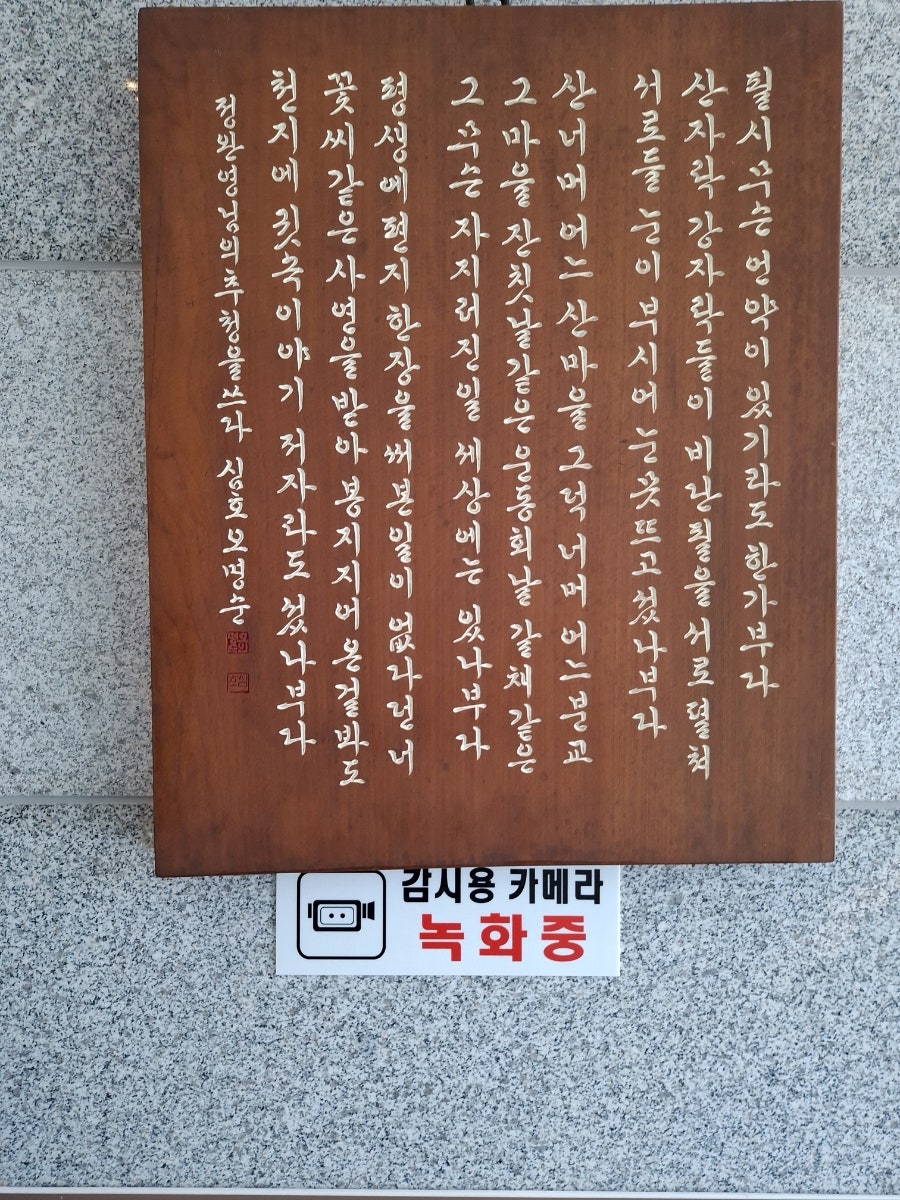 필시 무슨 언약이 있기라도 한가부다
산자락 강자락들이 비단필을 서로 펼쳐
서로들 눈이 부시어 눈 못 뜨고 섰나부다
산 너머 어느 산마을 그 언덕 너머 어느 분교
그 마을 잔칫날 같은 운동회날 갈채 같은
그 무슨 자지러진 일 세상에는 있나부다
평생에 편지 한 장을 써 본 일이 없다던 너
꽃씨 같은 사연을 받아 봉지 지어 온 걸 봐도
천지에 귓속 이야기 저자라도 섰나부다
정완영님의 추청을 쓰다 심호 오명순
감시용 카메라
녹화중